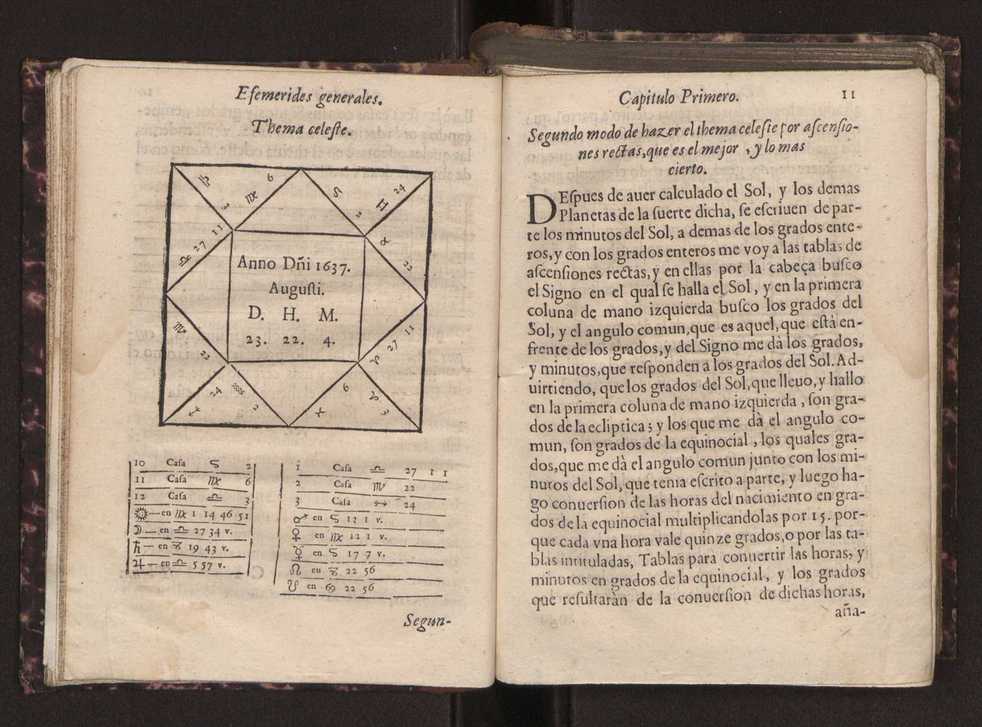 Efemerides generales.
Thema celeſte.
♍ 6
♌ 2
♊ 24
♎ 3
♎ 27 11
♉ 22
♏ 22
♈ 27 11
♐ 24
♒ 2
♓ 6
♈ 3
Anno Dñi 1637.
Auguſti.
D. H. M.
23. 22. 4.
10 Caſa ♌ 2
11 Caſa ♍ 6
12 Caſa ♎ 3
☼—en ♍ 1 14 46 51
☽—en ♎ 27 34 v.
♄—en ♉ 19 43 v.
♃—en ♎ 5 57 v.
1 Caſa ♎ 27 11
2 Caſa ♏ 22
3 Caſa ♐ 24
♂ en ♌ 12 1 v.
♀ en ♍ 12 1 v.
☿ en ♌ 17 7 v.
☊ en 22 56
☋ en ♋ 22 56
Segun-
Capitulo Primero. 11
Segundo modo de hazer el thema celeſte por aſcenſio-
nes rectas, que es el mejor , y lo mas
cierto.
DEſpues de auer calculado el Sol, y los demas
Planetas de la ſuerte dicha, ſe eſcriuen de par-
te los minutos del Sol, a demas de los grados ente-
ros, y con los grados enteros me voy a las tablas de
aſcenſiones rectas, y en ellas por la cabeça buſco
el Signo en el qual ſe halla el Sol , y en la primera
coluna de mano izquierda buſco los grados del
Sol, y el angulo comun, que es aquel, que eſtà en-
frente de los grados, y del Signo me dà los grados,
y minutos, que reſponden a los grados del Sol. Ad-
uirtiendo, que los grados del Sol, que lleuo, y hallo
en la primera coluna de mano izquierda , ſon gra-
dos de la ecliptica ; y los que me dà el angulo co-
mun, ſon grados de la equinocial , los quales gra-
dos, que me dà el angulo comun junto con los mi-
nutos del Sol, que tenia eſcrito a parte, y luego ha-
go conuerſion de las horas del nacimiento en gra-
dos de la equinocial multiplicandolas por 15. por-
que cada vna hora vale quinze grados, o por las ta-
blas intituladas, Tablas para conuertir las horas, y
minutos en grados de la equinocial , y los grados
que reſultaràn de la conuerſion de dichas horas,
aña-